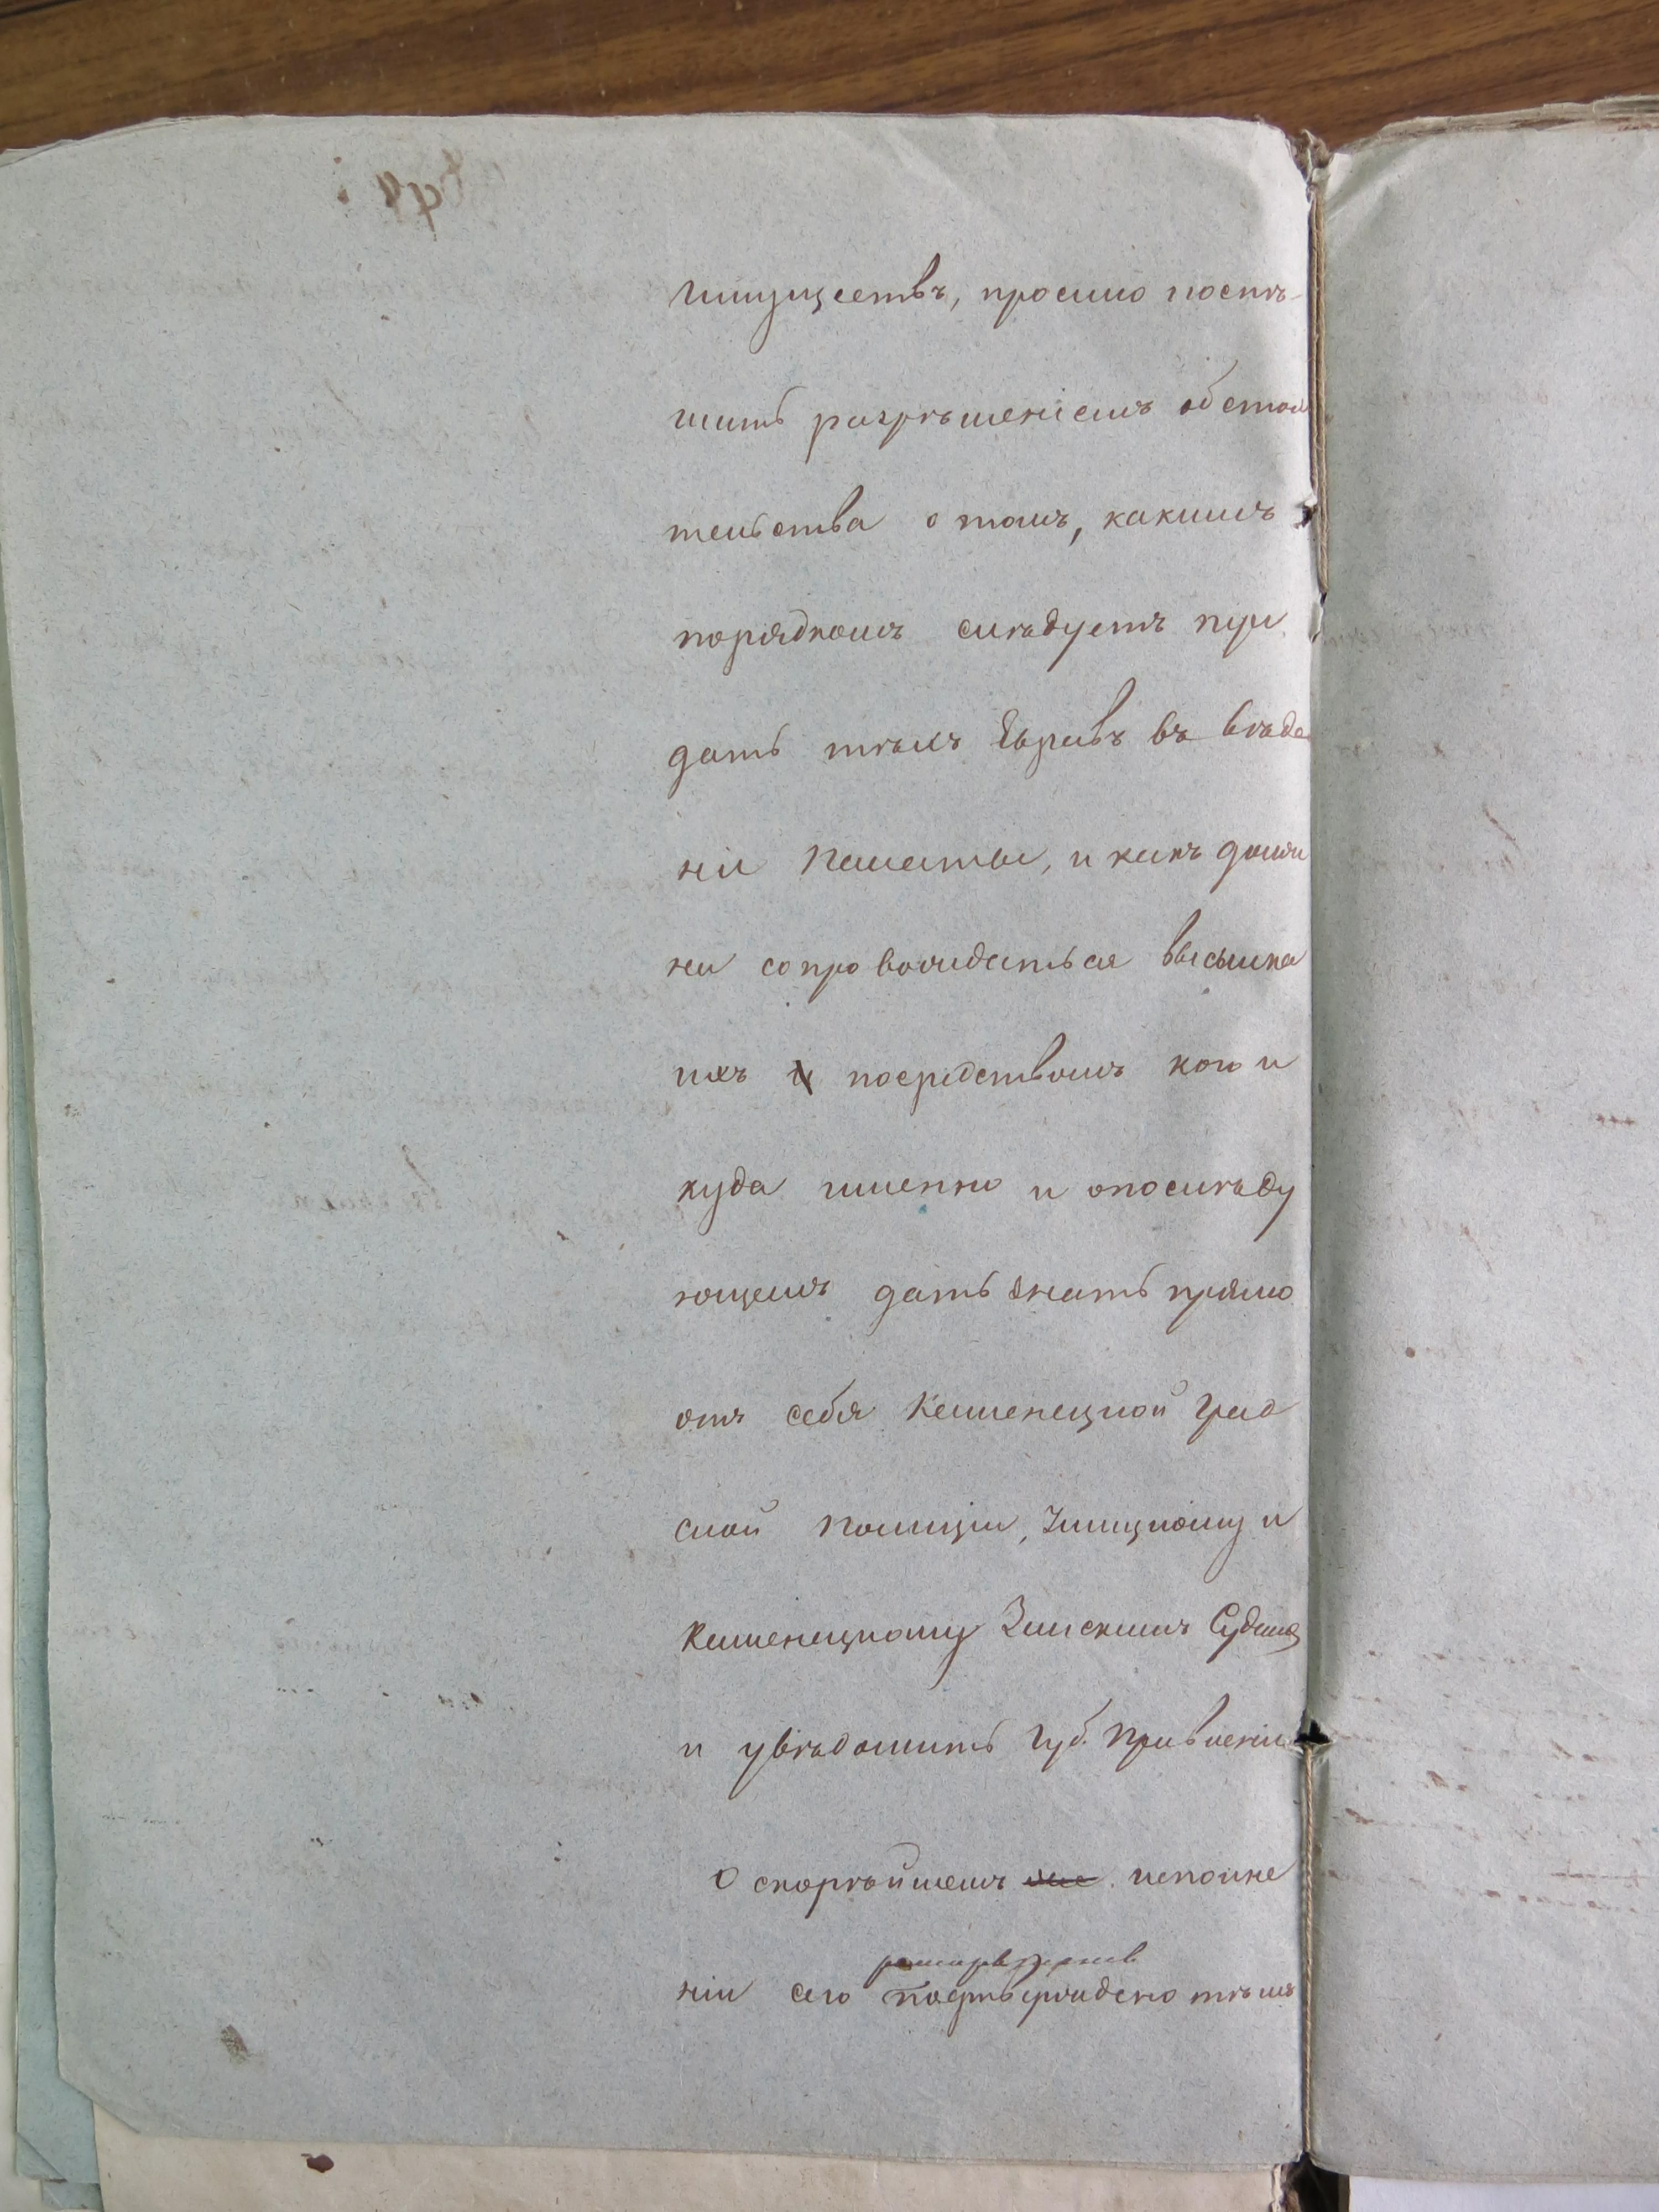 имуществъ, просило поспѣ-
шить разрѣшеніемъ обстоя
тельства о томъ, какимъ
порядкомъ слѣдуетъ пере
дать тѣхъ Евреевъ въ вѣде
ніи Палаты, и какъ долж
на сопровождаться высылка
ихъ посредствомъ кого и
куда именно и опослѣду
ющемъ дать знать прямо
отъ себя Каменецкой Град
ской Полиціи, Ушицкому и
Каменецкому Земскимъ Судамъ
и увѣдомить Губ. Правленіе
О скорѣйшемъ исполне
ніи сего подтверждено тѣмъ